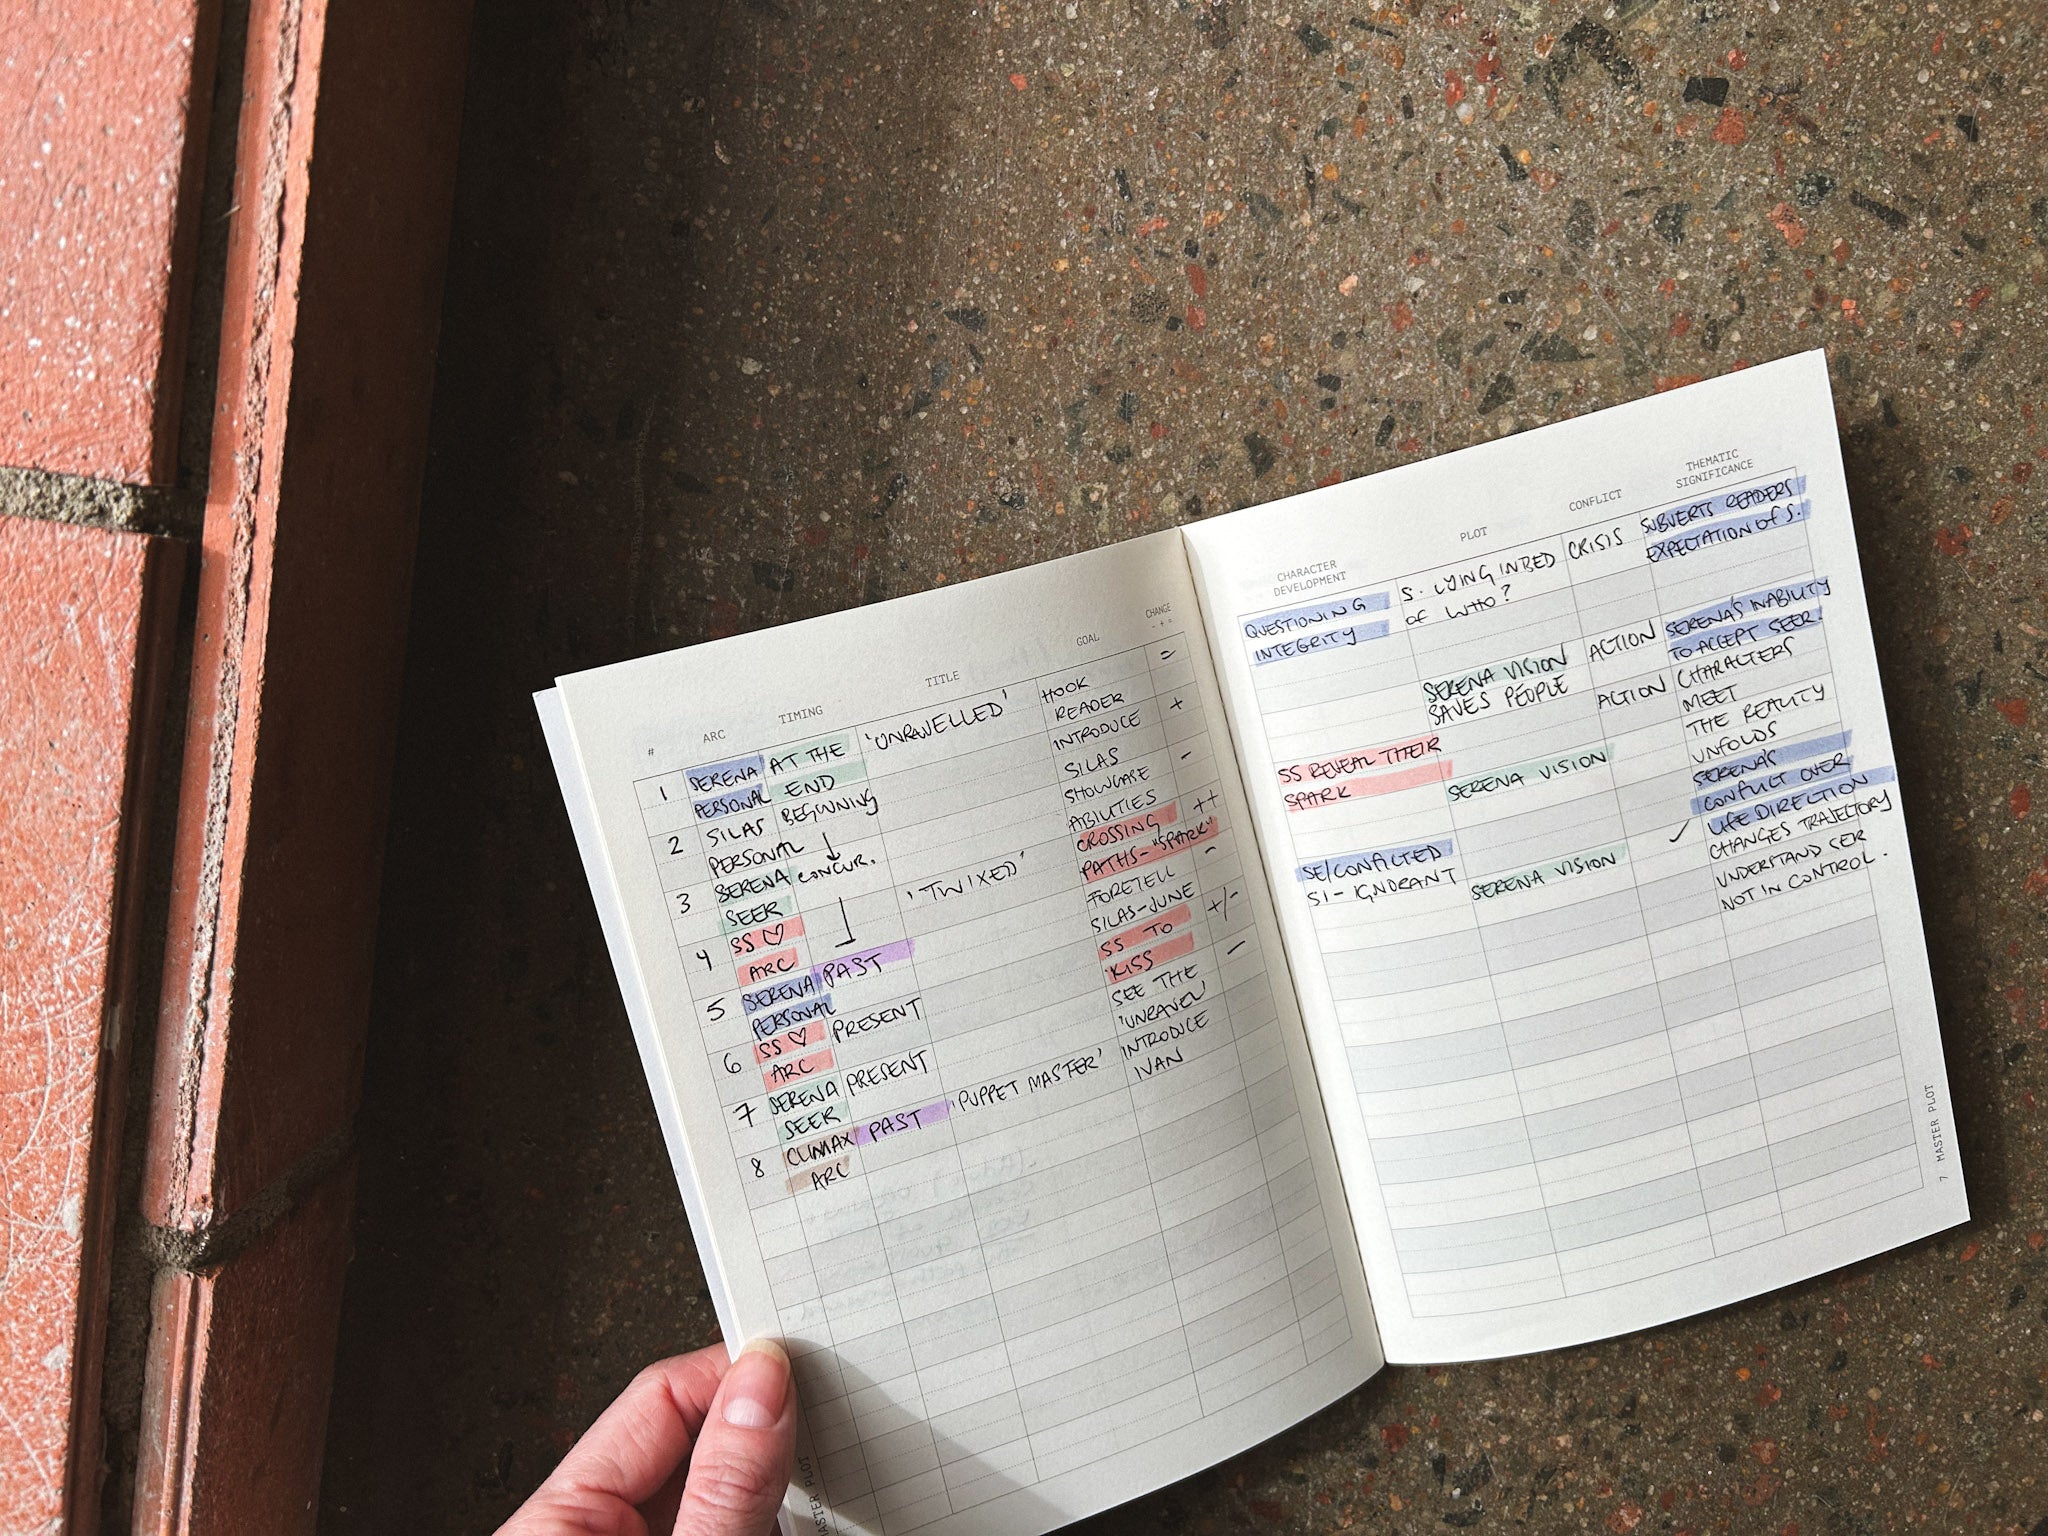 #
ARC
TIMING
TITLE
GOAL
CHANGE
- + =
1
SERENA
PERSONAL
AT THE
END
'UNRAVELLED'
HOOK
READER
=
2
SILAS
PERSONAL
BEGINNING
INTRODUCE
SILAS
+
3
SERENA
SEER
CONCUR.
SHOWCASE
ABILITIES
-
4
SS ♡
ARC
'TWIXED'
CROSSING
PATHS-"SPARK"
++
5
SERENA
PERSONAL
PAST
FORETELL
SILAS-JUNE
-
6
SS ♡
ARC
PRESENT
SS TO
KISS
+/-
7
SERENA
SEER
PRESENT
SEE THE
'UNRAVEL'
-
8
CLIMAX
ARC
PAST
'PUPPET MASTER'
INTRODUCE
IVAN
MASTER PLOT
CHARACTER
DEVELOPMENT
PLOT
CONFLICT
THEMATIC
SIGNIFICANCE
QUESTIONING
INTEGRITY
S. LYING IN BED
OF WHO?
CRISIS
SUBVERTS READERS
EXPECTATION OF S.
SERENA VISION
SAVES PEOPLE
ACTION
SERENA'S INABILITY
TO ACCEPT SEER.
SS REVEAL THEIR
SPARK
ACTION
CHARACTERS
MEET
SERENA VISION
THE REALITY
UNFOLDS
SERENA'S
CONFLICT OVER
LIFE DIRECTION
SE/CONFICTED
SI- IGNORANT
✓
CHANGES TRAJECTORY
SERENA VISION
UNDERSTAND SER
NOT IN CONTROL.
7 MASTER PLOT